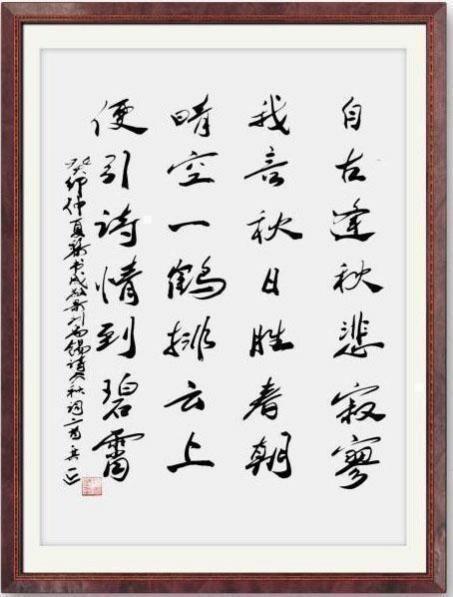 自古逢秋悲寂寥
我言秋日胜春朝
晴空一鶴排云上
便引詩情到碧霄
癸卯仲夏 刘禹锡 秋词二首